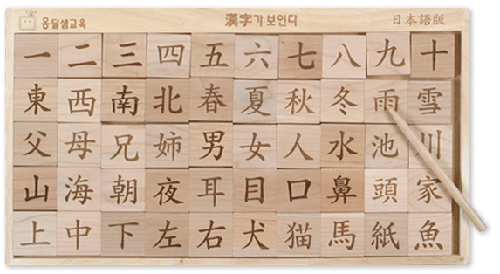 옹달샘교육 漢字가보인다 日本語版
一 二 三 四 五 六 七 八 九 十
東 西 南 北 春 夏 秋 冬 雨 雪
父 母 兄 姉 男 女 人 水 池 川
山 海 朝 夜 耳 目 口 鼻 頭 家
上 中 下 左 右 犬 猫 馬 紙 魚